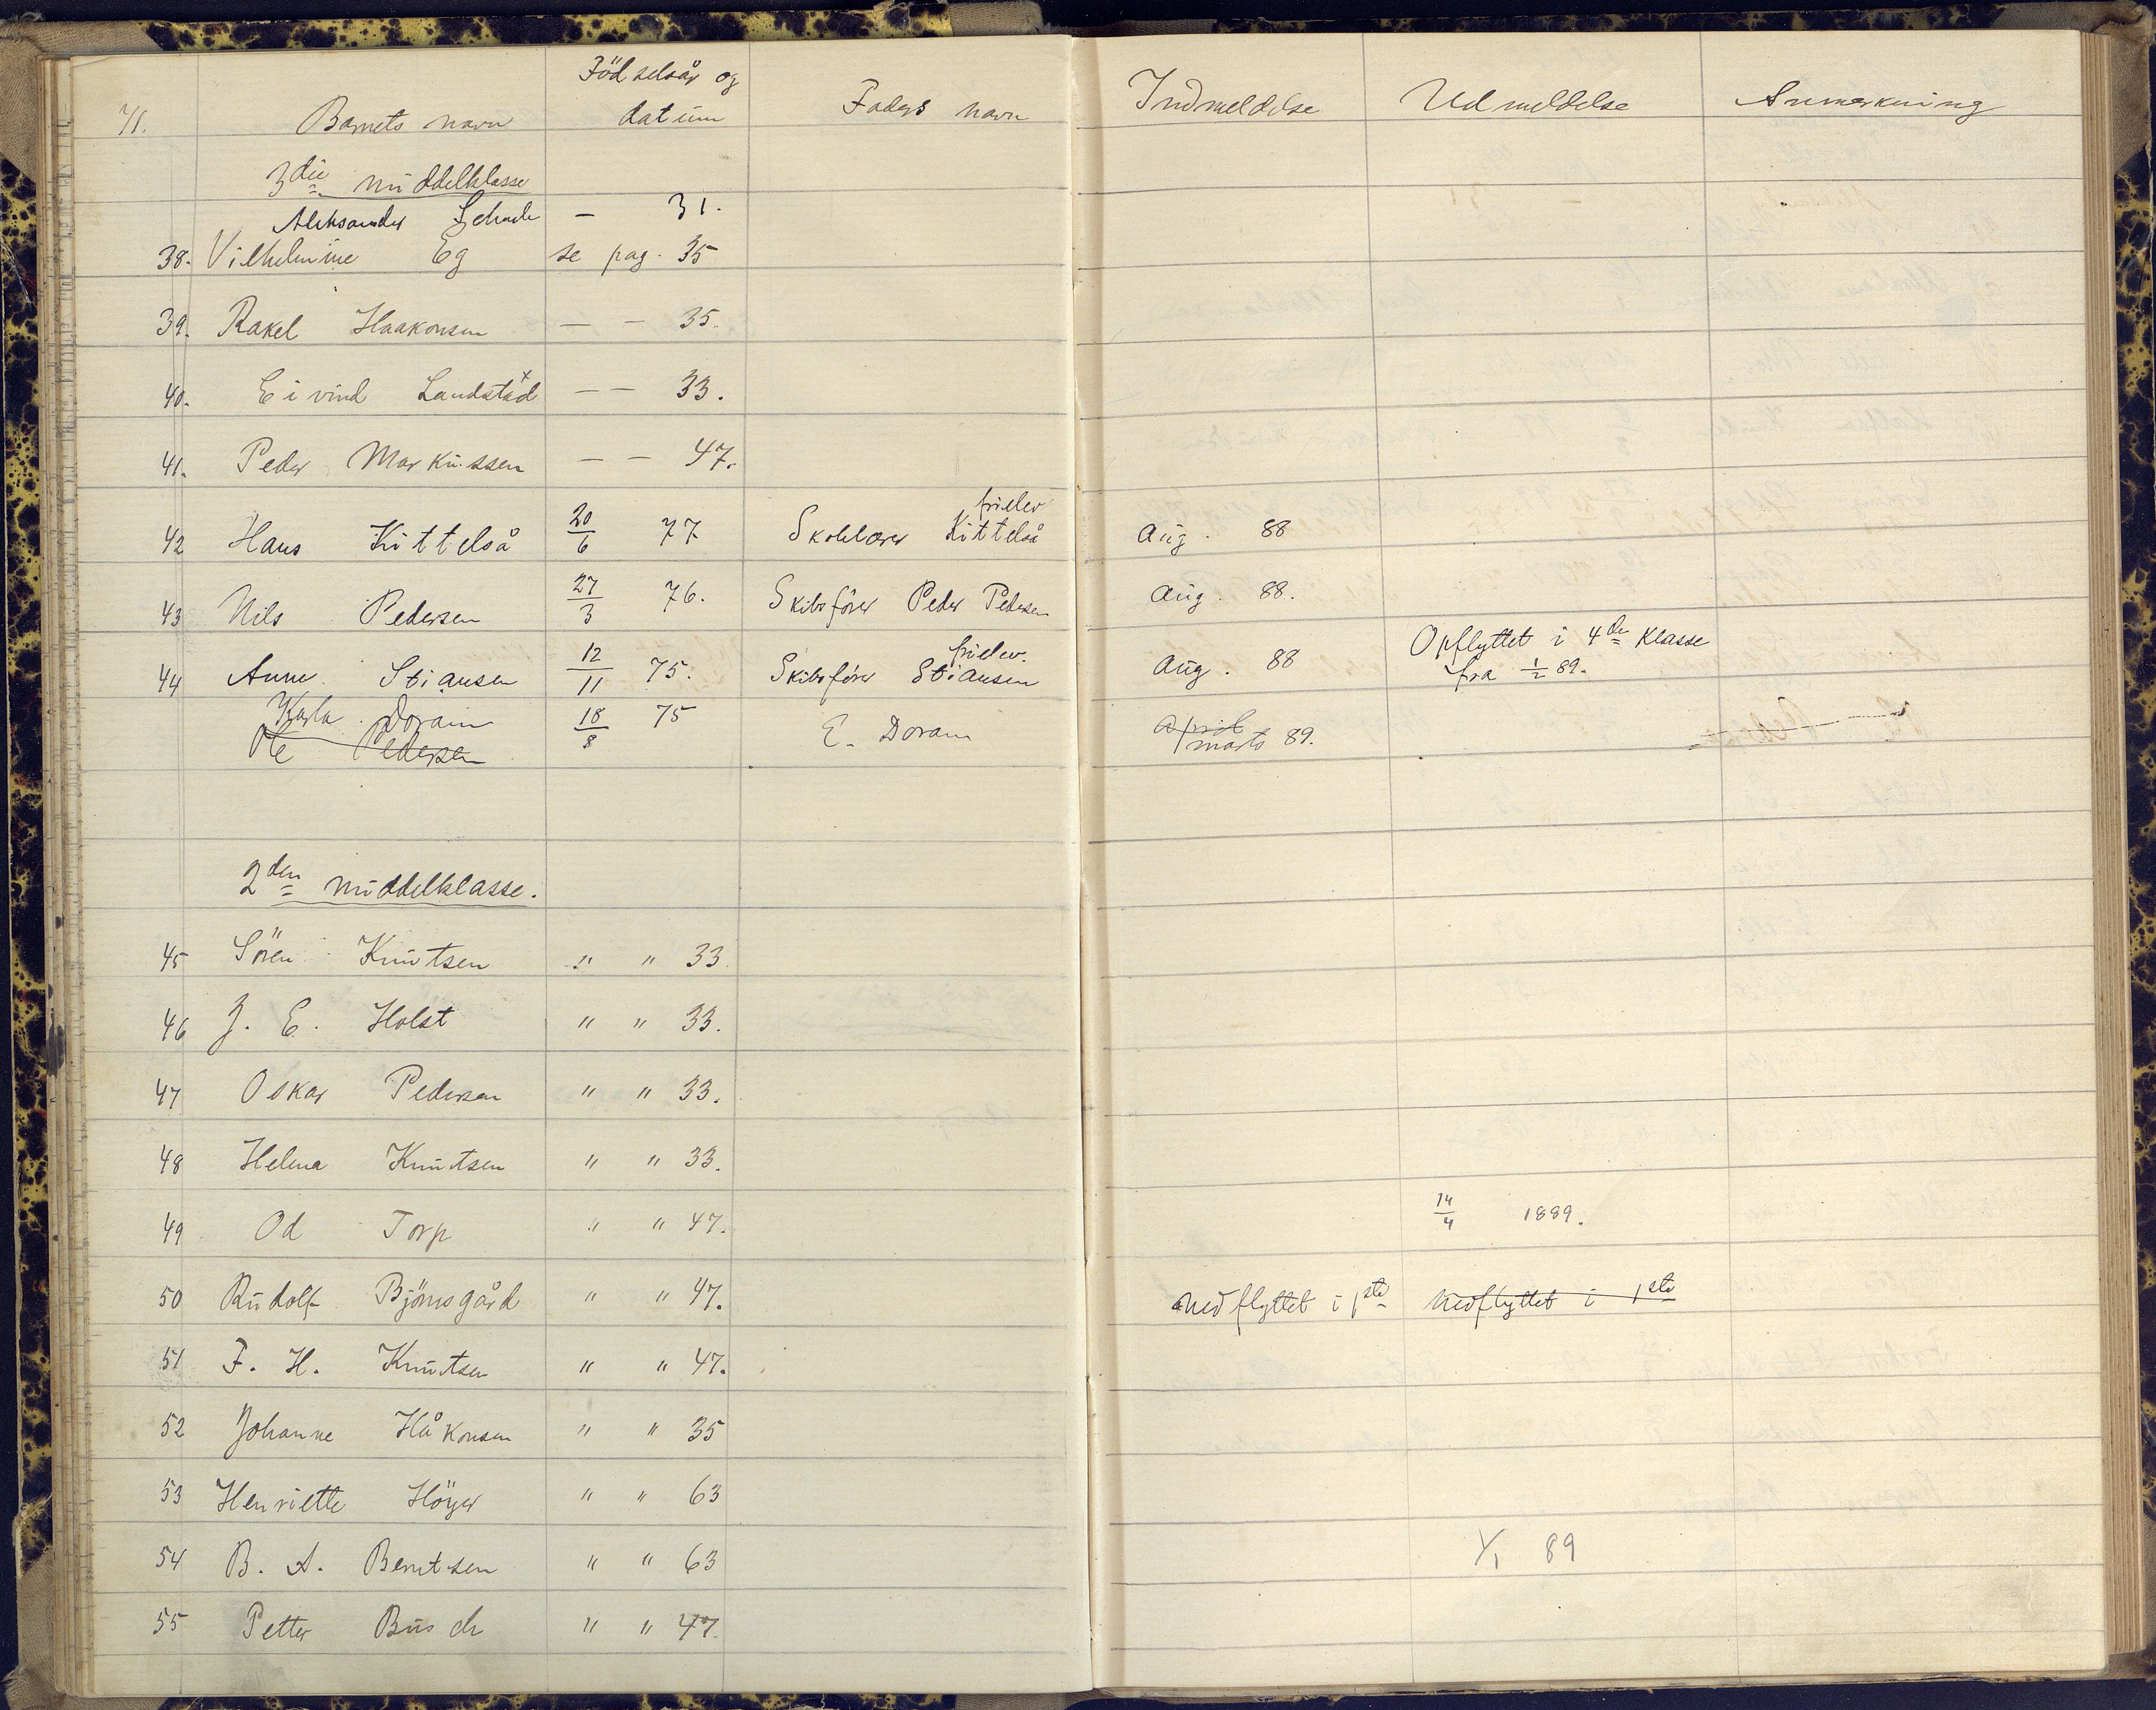 71. Barnets navn Födselsår og datum Faders navn Indmeldelse Udmeldelse Anmerkning
3die middelklasse
Aleksander — 31.
38. Vilhelmine Eg se pag. 35
39. Rakel Haakonsen — — 35.
40. Eivind Landstad x — — 33.
41. Peder Markussen — — 47.
42 Hans Kittelså 20/6 77 Skolelærer Kittelså frielev Aug. 88
43 Nils Pedersen 27/3 76. Skibsförer Peder Pedersen Aug. 88.
44 Anne Stiansen 12/11 75. Skibsförer Stiansen frielev. Aug. 88 Opflyttet i 4de Klasse
fra 1/2 89.
Karla Doram 18/8 75 E. Doram April
Ole Pedersen marts 89.
2den middelklasse.
45 Sören Knutsen " " 33
46 J. E. Holst " " 33.
47 Oskar Pedersen " " 33.
48 Helena Knutsen " " 33.
49 Od Torp " " 47. 14/4 1889.
50 Rudolf Björnsgård " " 47. Nedflyttet i 1ste Nedflyttet i 1ste
51 F. H. Knutsen " " 47.
52 Johanne Håkonsen " " 35
53 Henriette Höyer " " 63
54 B. A. Berntsen " " 63 1/1 89
55 Petter Busch " " 47.